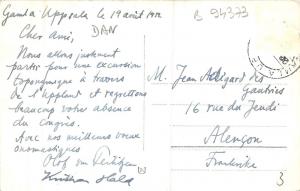 Gamla Uppsala le 19 août 1952
B 94373
Cher ami, DAN
Nous allons justement
partir pour une excursion
toponymique à travers
de l'Uppland et regrettons
beaucoup votre absence
du Congrès.
Avec nos meilleurs voeux
onomastiques
M. Jean Adigard des
Gautries
16 rue du Jeudi
Alençon
Frankrike
3